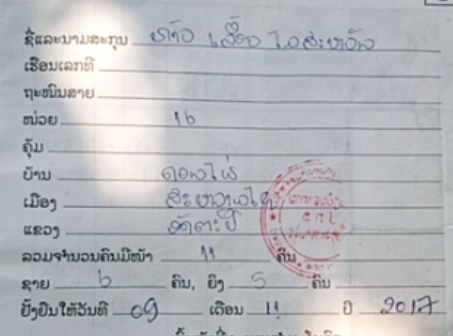 ຊື່ແລະນາມສະກຸນ ທ້າວ
ເຮືອນເລກທີ
ຖະໜົນສາຍ
ໜ່ວຍ 16
ຄຸ້ມ
ບ້ານ ດອນໄຜ່
ເມືອງ ສະໜາມໄຊ
ແຂວງ ອັດຕະປື
ລວມຈຳນວນຄົນມີໜ້າ 11 ຄົນ
ຊາຍ 6 ຄົນ, ຍິງ 5 ຄົນ
ຢັ້ງຢືນໃຫ້ວັນທີ 09 ເດືອນ 11 ປີ 2017